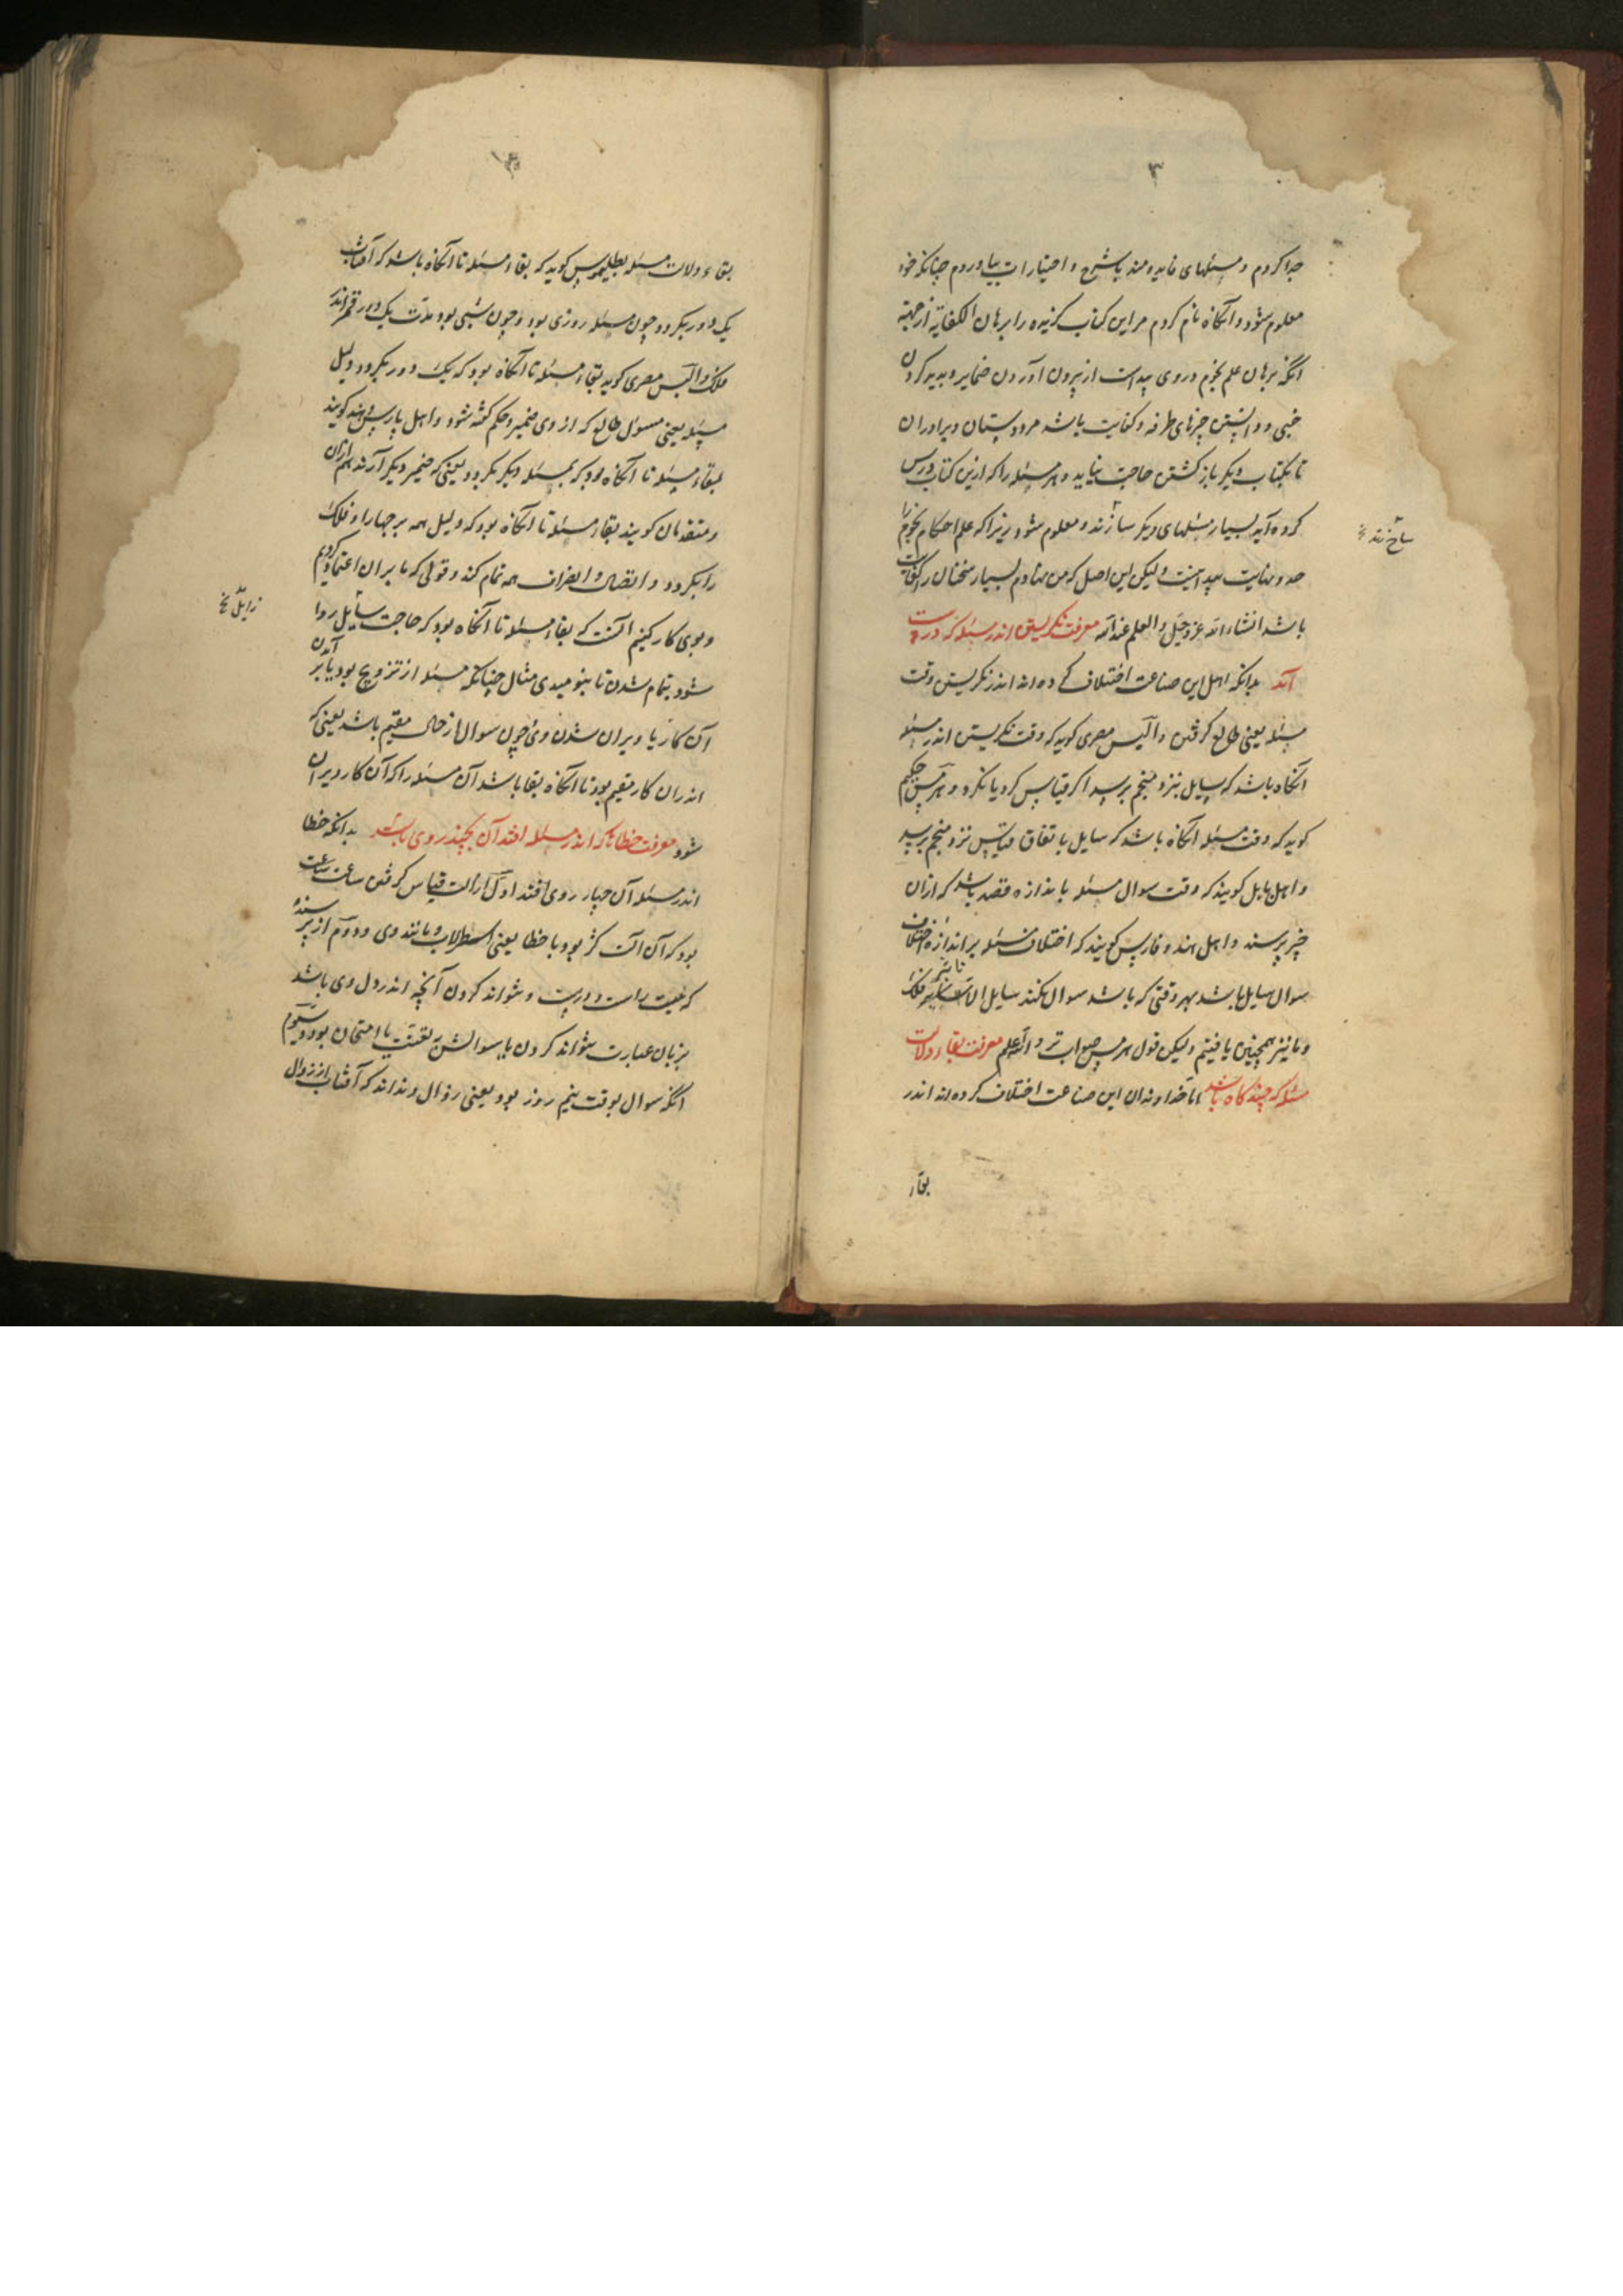 ۳
جدا کردم و مسئلهای فایده مند با شرح و اختیارات بیاوردم چنانکه خود
معلوم شود و آنکاه نام کردم مر این کتاب کزیده را برهان الکفایة از جهة
انکه برهان علم نجوم در وی پیداست از بیرون آوردن ضمایر و پدید کردن
خبی و دانستن چیزهای طرفه و کفایت باشد مر دوستان و برادران
تا بکتاب دیکر باز کشتن حاجت نیاید و هر مسئله را که ازین کتاب درس
کرده آید بسیار مسئلهای دیکر سازند و معلوم شود زیرا که علم احکام نجوم را
حد و نهایت پیدا نیست ولیکن این اصل که من نهادم بسیار سخنان را کفایت
باشد انشاء الله عز و جل والعلم عند الله معرفت نکریستن اندر مسئله که درست
آید بدانکه اهل این صناعت اختلاف کرده اند اندر نکریستن وقت
مسئله یعنی طالع کرفتن والیس مصری کوید که وقت نکریستن اندر مسئله
آنکاه باشد که سایل نزد منجم برسد اکر قیاس کرد یا نکرد و هرمس حکیم
کوید که وقت مسئله آنکاه باشد که سایل باتفاق قیاس نزد منجم برسد
و اهل بابل کویند که وقت سوال مسئله باندازه قصد باشد که ازان
خبر پرسند و اهل هند و فارس کویند که اختلاف مسئله بر اندازه اختلاف
سوال سایل باشد بهر وقتی که باشد سوال نکند سایل الا تاثیر فلک
و ما نیز همچنین یافتیم ولیکن قول هرمس صواب تر والله اعلم معرفت بقاء دلالت
مسئله که چند کاه باشد اما خداوندان این صناعت اختلاف کرده اند اندر
بقاء
بقاء دلالت مسئله بطلیموس کوید که بقاء مسئله تا آنکاه باشد که آفتاب
یک دور بکردد چون مسئله روزی بود و چون شبی بود مدت یک دور قمر اندر
فلک و الیس مصری کوید بقاء مسئله تا آنکاه بود که یک دور بکردد دلیل
مسئله یعنی مسئول طالع که از وی ضمیر و حکم کفته شود و اهل پارس و هند کویند
بقاء مسئله تا آنکاه بود که بمسئله دیکر بکردد یعنی که ضمیر دیکر آرند هم ازان
و متقدمان کویند بقاء مسئله تا آنکاه بود که دلیل همه برجها را و فلک
را بکردد و اتصال و انصراف همه تمام کند و قولی که ما بران اعتماد کردیم
و بوی کار کنیم آنست که بقاء مسئله تا آنکاه بود که حاجت سایل روا
شود بتمام شدن تا بنومیدی مثال چنانکه مسئله از تزویج بود یا بر آمدن
آن کار یا ویران شدن وی و چون سوال از حال مقیم باشد یعنی که
اندران کار مقیم بود تا آنکاه بقا باشد آن مسئله را که آن کار ویران
شود معرفت خطاها که اندر مسئله افتد آن بچند روی باشد بدانکه خطا
اندر مسئله آن چهار روی افتد اول از آلت قیاس کرفتن ساعت
بود که آن آلت کژ بود یا خطا یعنی اسطرلاب و مانند وی و دوم از پرسنده
که نیت راست و درست و نتواند کردن آنچه اندر دل وی باشد
بزبان عبارت نتواند کردن یا سوالش بتعنت یا امتحان بود و سیوم
انکه سوال بوقت نیم روز بود یعنی زوال و نداند که آفتاب از زوال